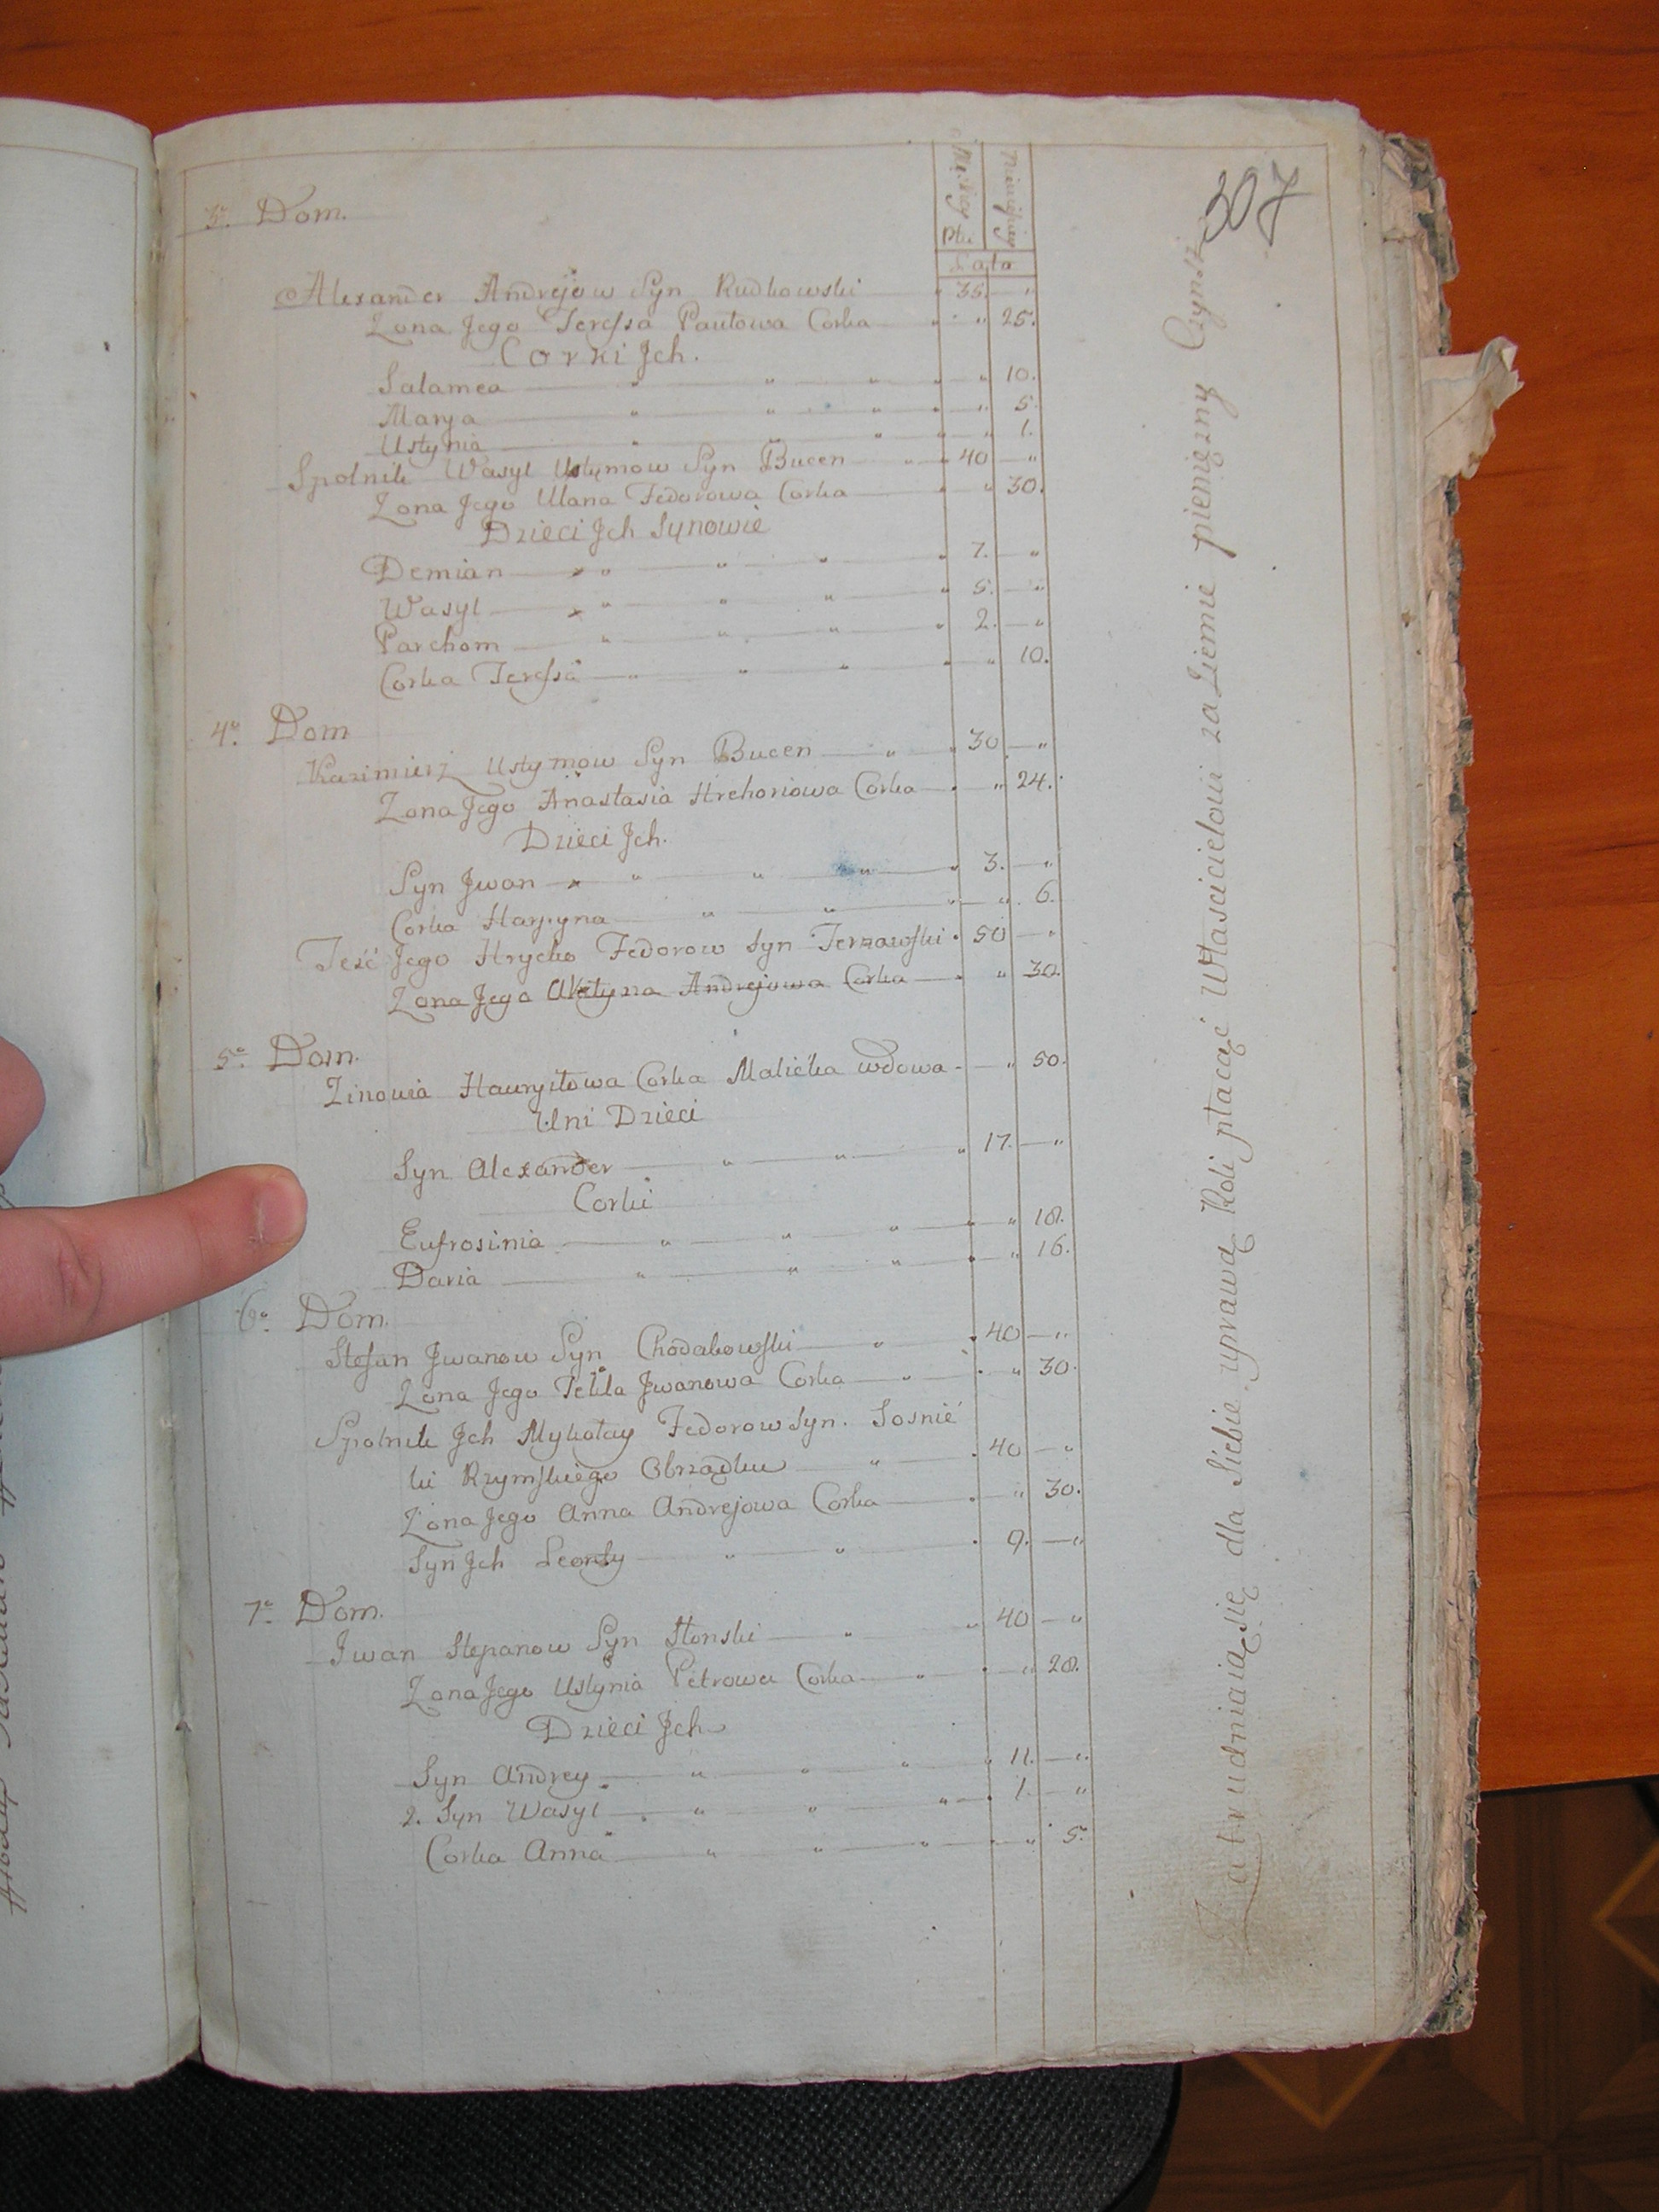 307
Męskiey Płci
Niewieściey
Lata
3o. Dom.
Alexander Andrejow Syn Rudkowski 35. "
Zona Jego Teressa Pawłowa Corka " 25.
Corki Jch.
Salamea " 10.
Marya " 5.
Ustynia " 1.
Spolnik Wasyl Ustymow Syn Bucen 40 "
Zona Jego Ulana Fedorowa Corka " 30.
Dzieci Jch Synowie
Demian 7. "
Wasyl 5. "
Parchom 2. "
Corka Teressa " 10.
4o. Dom
Kazimierz Ustymow Syn Bucen 30 "
Zona Jego Anastasia Hrehoriowa Corka " 24.
Dzieci Jch.
Syn Jwan 3. "
Corka Harpyna " 6.
Teść Jego Hrycko Fedorow Syn Terzawski 50 "
Zona Jego Akstyna Andrejowa Corka " 30.
5o. Dom.
Zinowia Hawryłowa Corka Malicka wdowa " 50.
U Jni Dzieci
Syn Alexander 17. "
Corki
Eufrosinia " 18.
Daria " 16.
6o. Dom.
Stefan Jwanow Syn Chodakowski 40 "
Zona Jego Tekla Jwanowa Corka " 30.
Spolnik Jch Mykołay Fedorow Syn. Sosnic
ki Rzymskiego Obrządku 40 "
Zona Jego Anna Andrejowa Corka " 30.
Syn Jch Leonty 9. "
7o. Dom.
Jwan Stepanow Syn Słonski 40 "
Zona Jego Ustynia Petrowa Corka " 28.
Dzieci Jch
Syn Andrey 11. "
2. Syn Wasyl 1. "
Corka Anna " 5.
Zatrudniaią się dla Siebie uprawą Roli płacąć Włascicielowi za Ziemie pieniężny Czynsz